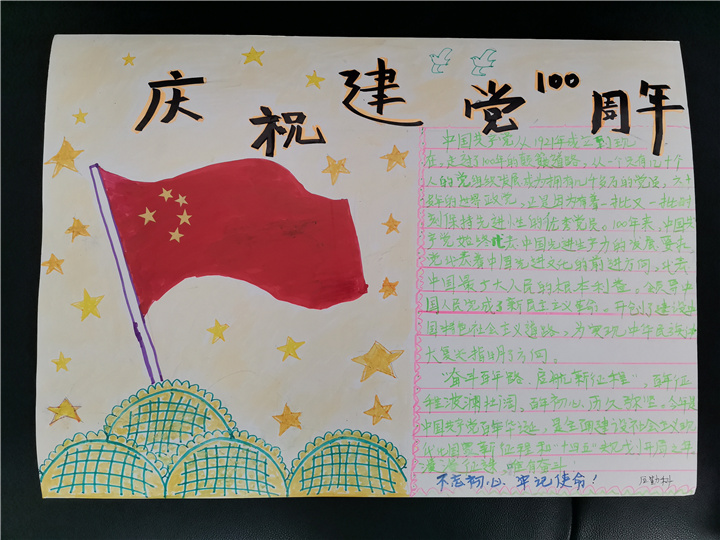 庆祝建党100周年
中国共产党从1921年成立到现
在,走过了100年的艰难道路,从一个只有几十个
人的党组织发展成为拥有几千万的党员,
的世界政党,正是因为有着一批又一批时
刻保持先进性的优秀党员。100年来,中国共
产党始终代表中国先进生产力的发展要求,
代表着中国先进文化的前进方向,代表
中国最广大人民的根本利益,领导中
国人民完成了新民主主义革命。开创了建设中
国特色社会主义道路,为实现中华民族伟
大复兴指明了方向。
“奋斗百年路,启航新征程”,百年征
程波澜壮阔,百年初心历久弥坚。今年是
中国共产党百年华诞,是全面建设社会主义现
代化国家新征程和“十四五”规划开局之年
漫漫征途,唯有奋斗
不忘初心、牢记使命!